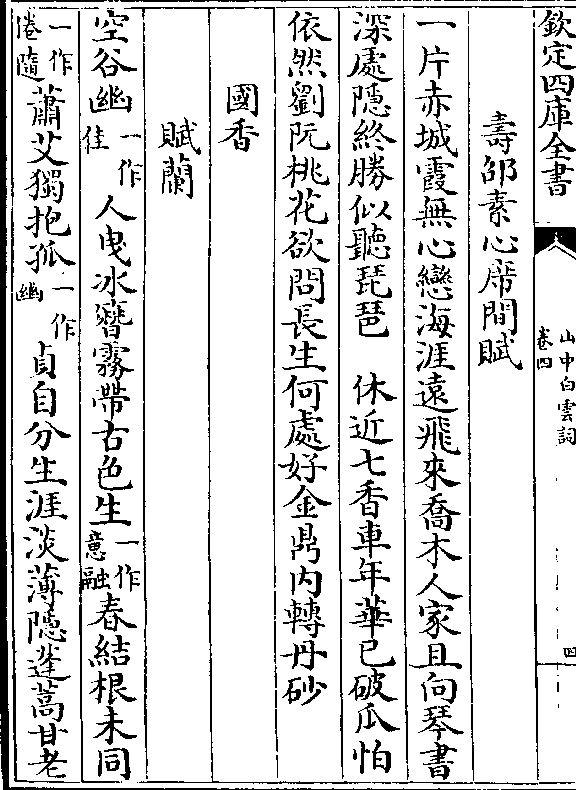 欽定四庫全書
山中白雲詞
卷四
四
壽邵素心席間賦
一片赤城霞無心戀海涯遠飛來喬木人家且向琴書
深處隱終勝似聽琵琶　休近七香車年華已破瓜怕
依然劉阮桃花欲問長生何處好金鼎内轉丹砂
國香
賦蘭
空谷幽一作佳人曳冰簪霧帶古色生一作意融春結根未同
一作倦隨蕭艾獨抱孤一作幽貞自分生涯淡薄隱蓬蒿甘老